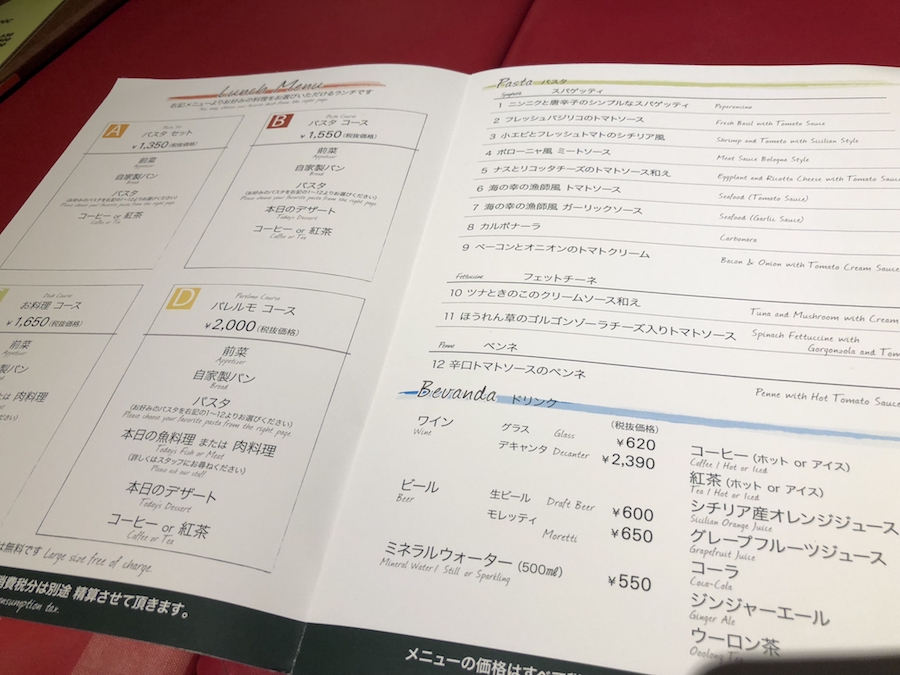 Lunch Menu
右記メニューよりお好みの料理をお選びいただけるランチです
You may choose your favorite dish from the right page.
A
Pasta Set
パスタ セット
¥1,350(税抜価格)
前菜
Appetizer
自家製パン
Bread
パスタ
(お好みのパスタを右記の1~12よりお選びください)
Please choose your favorite pasta from the right page.
コーヒー or 紅茶
Coffee or Tea
B
Pasta Course
パスタ コース
¥1,550(税抜価格)
前菜
Appetizer
自家製パン
Bread
パスタ
(お好みのパスタを右記の1~12よりお選びください)
Please choose your favorite pasta from the right page
本日のデザート
Todays Dessert
コーヒー or 紅茶
Coffee or Tea
Dish Course
お料理 コース
¥1,650(税抜価格)
前菜
Appetizer
製パン
Bread
または 肉料理
D
Parlermo Course
パレルモ コース
¥2,000(税抜価格)
前菜
Appetizer
自家製パン
Bread
パスタ
(お好みのパスタを右記の1~12よりお選びください)
Please choose your favorite pasta from the right page.
本日の魚料理 または 肉料理
Todays Fish or Meat
(詳しくはスタッフにお尋ねください)
Please ask our staff
本日のデザート
Todays Dessert
コーヒー or 紅茶
Coffee or Tea
は無料です Large size free of charge.
消費税分は別途 精算させて頂きます。
consumption tax.
Pasta パスタ
Spaghetti スパゲッティ
1 ニンニクと唐辛子のシンプルなスパゲッティ Peperoncino
2 フレッシュバジリコのトマトソース Fresh Basil with Tomato Sauce
3 小エビとフレッシュトマトのシチリア風 Shrimp and Tomato with Sicilian Style
4 ボローニャ風 ミートソース Meat Sauce Bologna Style
5 ナスとリコッタチーズのトマトソース和え Eggplant and Ricotta Cheese with Tomato Sauce
6 海の幸の漁師風 トマトソース Seafood (Tomato Sauce)
7 海の幸の漁師風 ガーリックソース Seafood (Garlic Sauce)
8 カルボナーラ Carbonara
9 ベーコンとオニオンのトマトクリーム Bacon & Onion with Tomato Cream Sauce
Fettuccine フェットチーネ
10 ツナときのこのクリームソース和え Tuna and Mushroom with Cream
11 ほうれん草のゴルゴンゾーラチーズ入りトマトソース Spinach Fettuccine with
Gorgonzola and Tom
Penne ペンネ
12 辛口トマトソースのペンネ Penne with Hot Tomato Sauce
Bevanda ドリンク
(税抜価格)
ワイン グラス Glass ¥620
Wine デキャンタ Decanter ¥2,390
ビール 生ビール Draft Beer ¥600
Beer モレッティ Moretti ¥650
ミネラルウォーター (500㎖) ¥550
Mineral Water / Still or Sparkling
コーヒー (ホット or アイス)
Coffee / Hot or Iced
紅茶 (ホット or アイス)
Tea / Hot or Iced
シチリア産オレンジジュース
Sicilian Orange Juice
グレープフルーツジュース
Grapefruit Juice
コーラ
Coca-Cola
ジンジャーエール
Ginger Ale
ウーロン茶
Oolong
メニューの価格はすべて